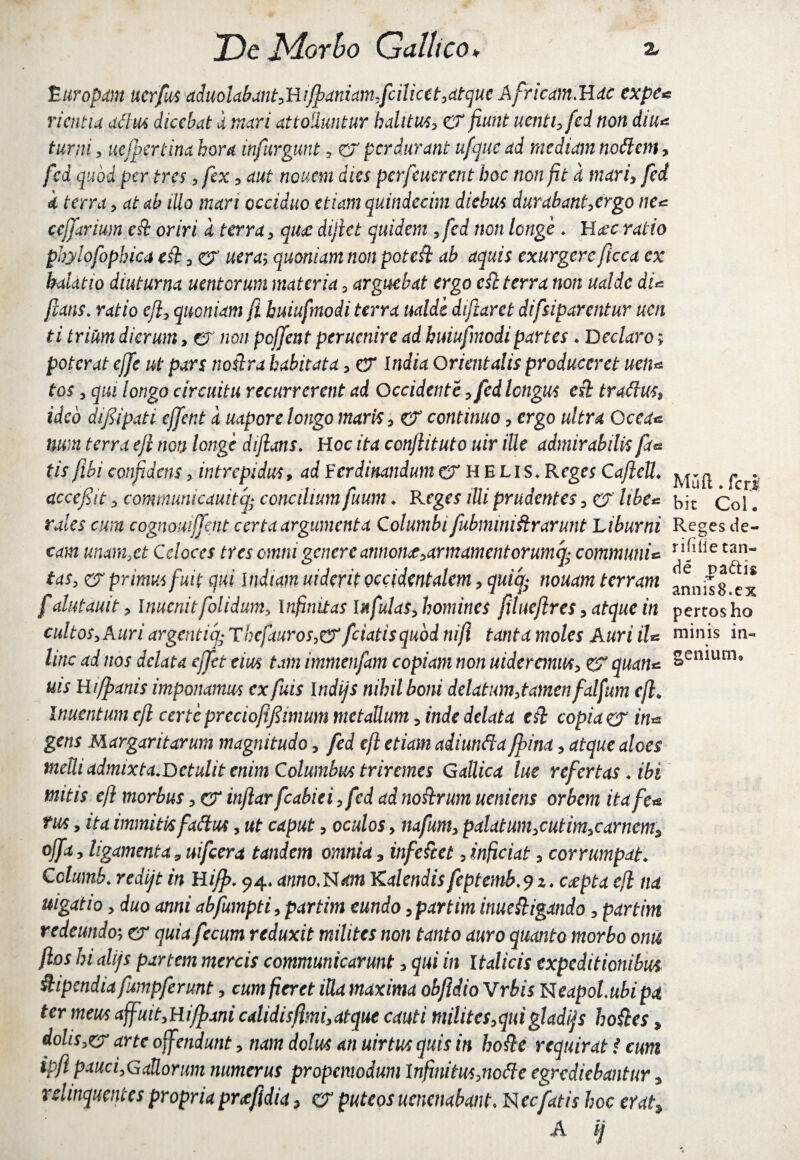 De Morbo Gallico. 2
Europam uersus aduolabant, Hispaniam, scilicet, atque Africam. Hac expe=
rientia actus dicebat à mari attolluntur halitus, & fiunt uenti, sed non diu=
turni, uespertina hora insurgunt, & perdurant usque ad mediam noctem,
sed quòd per tres, sex, aut nouem dies perseuerent hoc non fit à mari, sed
à terra, at ab illo mari occiduo etiam quindecim diebus durabant, ergo ne=
cessarium est oriri à terra, quæ distet quidem, sed non longè. Hæc ratio
phylosophica est, & uera; quoniam non potest ab aquis exurgere sicca ex
halatio diuturna uentorum materia, arguebat ergo est terra non ualde di=
stans. ratio est, quoniam si huiusmodi terra ualdè distaret dissiparentur uen
ti trium dierum, & non possent peruenire ad huiusmodi partes. Declaro;
poterat esse ut pars nostra habitata, & India Orientalis produceret uen=
tos, qui longo circuitu recurrerent ad Occidentē, sed longus est tractus,
ideò dissipati essent à uapore longo maris, & continuo, ergo ultra Ocea=
num terra est non longè distans. Hoc ita constituto uir ille admirabilis fa=
tis sibi confidens, intrepidus, ad Ferdinandum & HELIS. Reges Castell.
accessit, communicauitq; concilium suum. Reges illi prudentes, & libe=
rales cum cognouissent certa argumenta Columbi subministrarunt Liburni
cam unam, et Celoces tres omni genere annonæ, armamentorumq; communi=
tas, & primus fuit qui Indiam uiderit occidentalem, quiq; nouam terram
salutauit, Inuenit solidum, Infinitas Insulas, homines siluestres, atque in
cultos, Auri argentiq; Thesauros, & sciatis quòd nisi tanta moles Auri il=
linc ad nos delata esset eius tam immensam copiam non uideremus, & quan=
uis Hispanis imponamus ex suis Indijs nihil boni delatum, tamen falsum est.
Inuentum est certè preciosissimum metallum, inde delata est copia & in=
gens Margaritarum magnitudo, sed est etiam adiuncta spina, atque aloes
melli admixta. Detulit enim Columbus triremes Gallica lue refertas. ibi
mitis est morbus, & instar scabiei, sed ad nostrum ueniens orbem ita fe=
rus, ita immitis factus, ut caput, oculos, nasum, palatum, cutim, carnem,
ossa, ligamenta, uiscera tandem omnia, infestet, inficiat, corrumpat.
Columb. redijt in Hisp. 94. anno. Nam Kalendis septemb. 92. cæpta est na
uigatio, duo anni absumpti, partim eundo, partim inuestigando, partim
redeundo; & quia secum reduxit milites non tanto auro quanto morbo onu
stos hi alijs partem mercis communicarunt, qui in Italicis expeditionibus
stipendia sumpserunt, cum fieret illa maxima obsidio Vrbis Neapol. ubi pa
ter meus affuit, Hispani calidissimi, atque cauti milites, qui gladijs hostes,
dolis, & arte offendunt, nam dolus an uirtus quis in hoste requirat? cum
ipsi pauci, Gallorum numerus propemodum Infinitus, nocte egrediebantur,
relinquentes propria præsidia, & puteos uenenabant. Nec satis hoc erat,
A ij
Must. scri
bit Col.
Reges de-
risisse tan-
dē pactis
annis 8. ex
pertos ho
minis in-
genium.